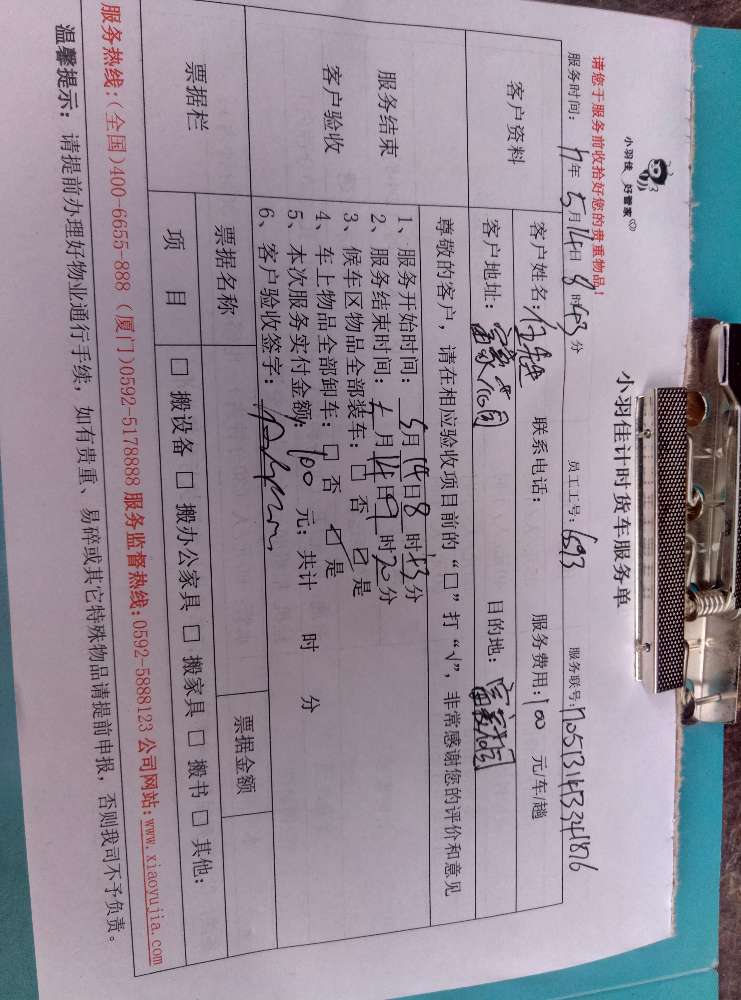 小羽佳 好管家
小羽佳计时货车服务单
请您于服务前收拾好您的贵重物品！
服务时间：17年5月14日8时43分 员工工号：1693 服务联号：
客户资料
客户姓名： 联系电话： 服务费用：100 元/车/趟
客户地址： 目的地：
尊敬的客户，请在相应验收项目前的“□”打“√”，非常感谢您的评价和意见
服务结束
客户验收
1、服务开始时间：5月14日8时43分
2、服务结束时间：5月14日9时20分
3、候车区物品全部装车：□否 ☑是
4、车上物品全部卸车：□否 ☑是
5、本次服务实付金额：100 元；共计 时 分
6、客户验收签字：
票据栏
票据名称 票据金额
项 目 □ 搬设备 □ 搬办公家具 □ 搬家具 □ 搬书 □ 其他：
服务热线：（全国）400-6655-888（厦门）0592-5178888 服务监督热线：0592-5888123 公司网站：www.xiaoyujia.com
温馨提示：请提前办理好物业通行手续，如有贵重、易碎或其它特殊物品请提前申报，否则我司不予负责。